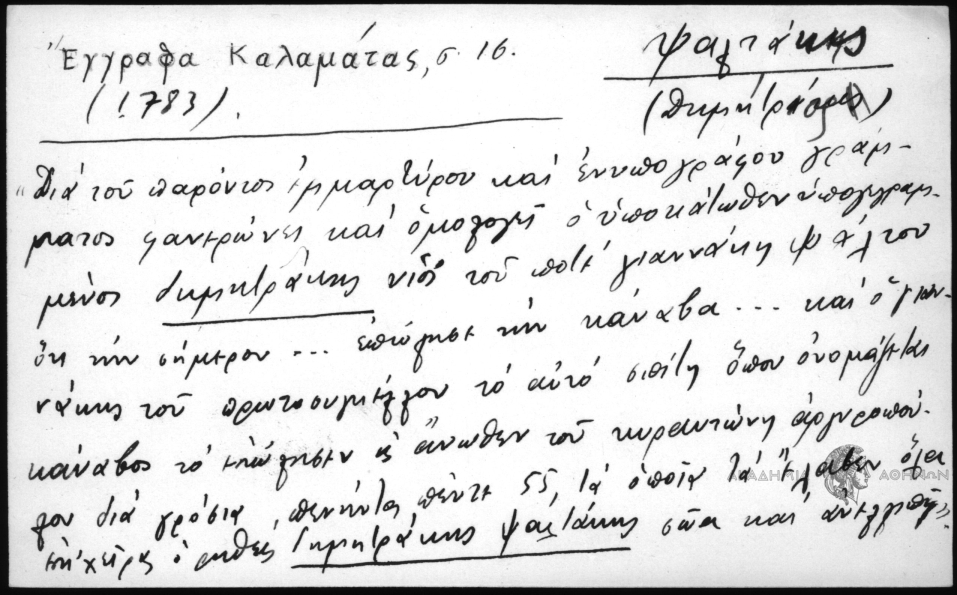 "Έγγραφα Καλαμάτας, σ 16.
(1783).
Ψαλτάκης
(Δημήτρ
"Διά τοῦ παρόντος ἐμμαρτύρου καί ἐννπογράφου γράμ-
ματος φανερώνει καί ὁμολογεῖ ὁ ὑποκάτωθεν ὑπογεγραμ-
μένος δημητράκης υἱός τοῦ ποτέ γιαννάκη ψάλτου
ὅτι τήν σήμερον ... ἐπώλησε τήν κάναβα ... καί ὁ γιαν-
νάκης τοῦ πρωτοσυγκέλλου τό αὐτό σπίτι ὅπου ὀνομάζεται
κάναβος τό ἐπώλησεν ὡς ἄνωθεν τοῦ κυραντώνη ἀργυροπού-
λου διά γρόσια πενήντα πέντε 55, τά ὁποῖα τά ἔλαβεν ὅλα
ἐπί χεῖρας ὁ ρηθείς δημητράκης ψαλτάκης σῶα καί ἀνελλιπῆ,
ΑΚΑΔΗΜΙΑ ΑΘΗΝΩΝ